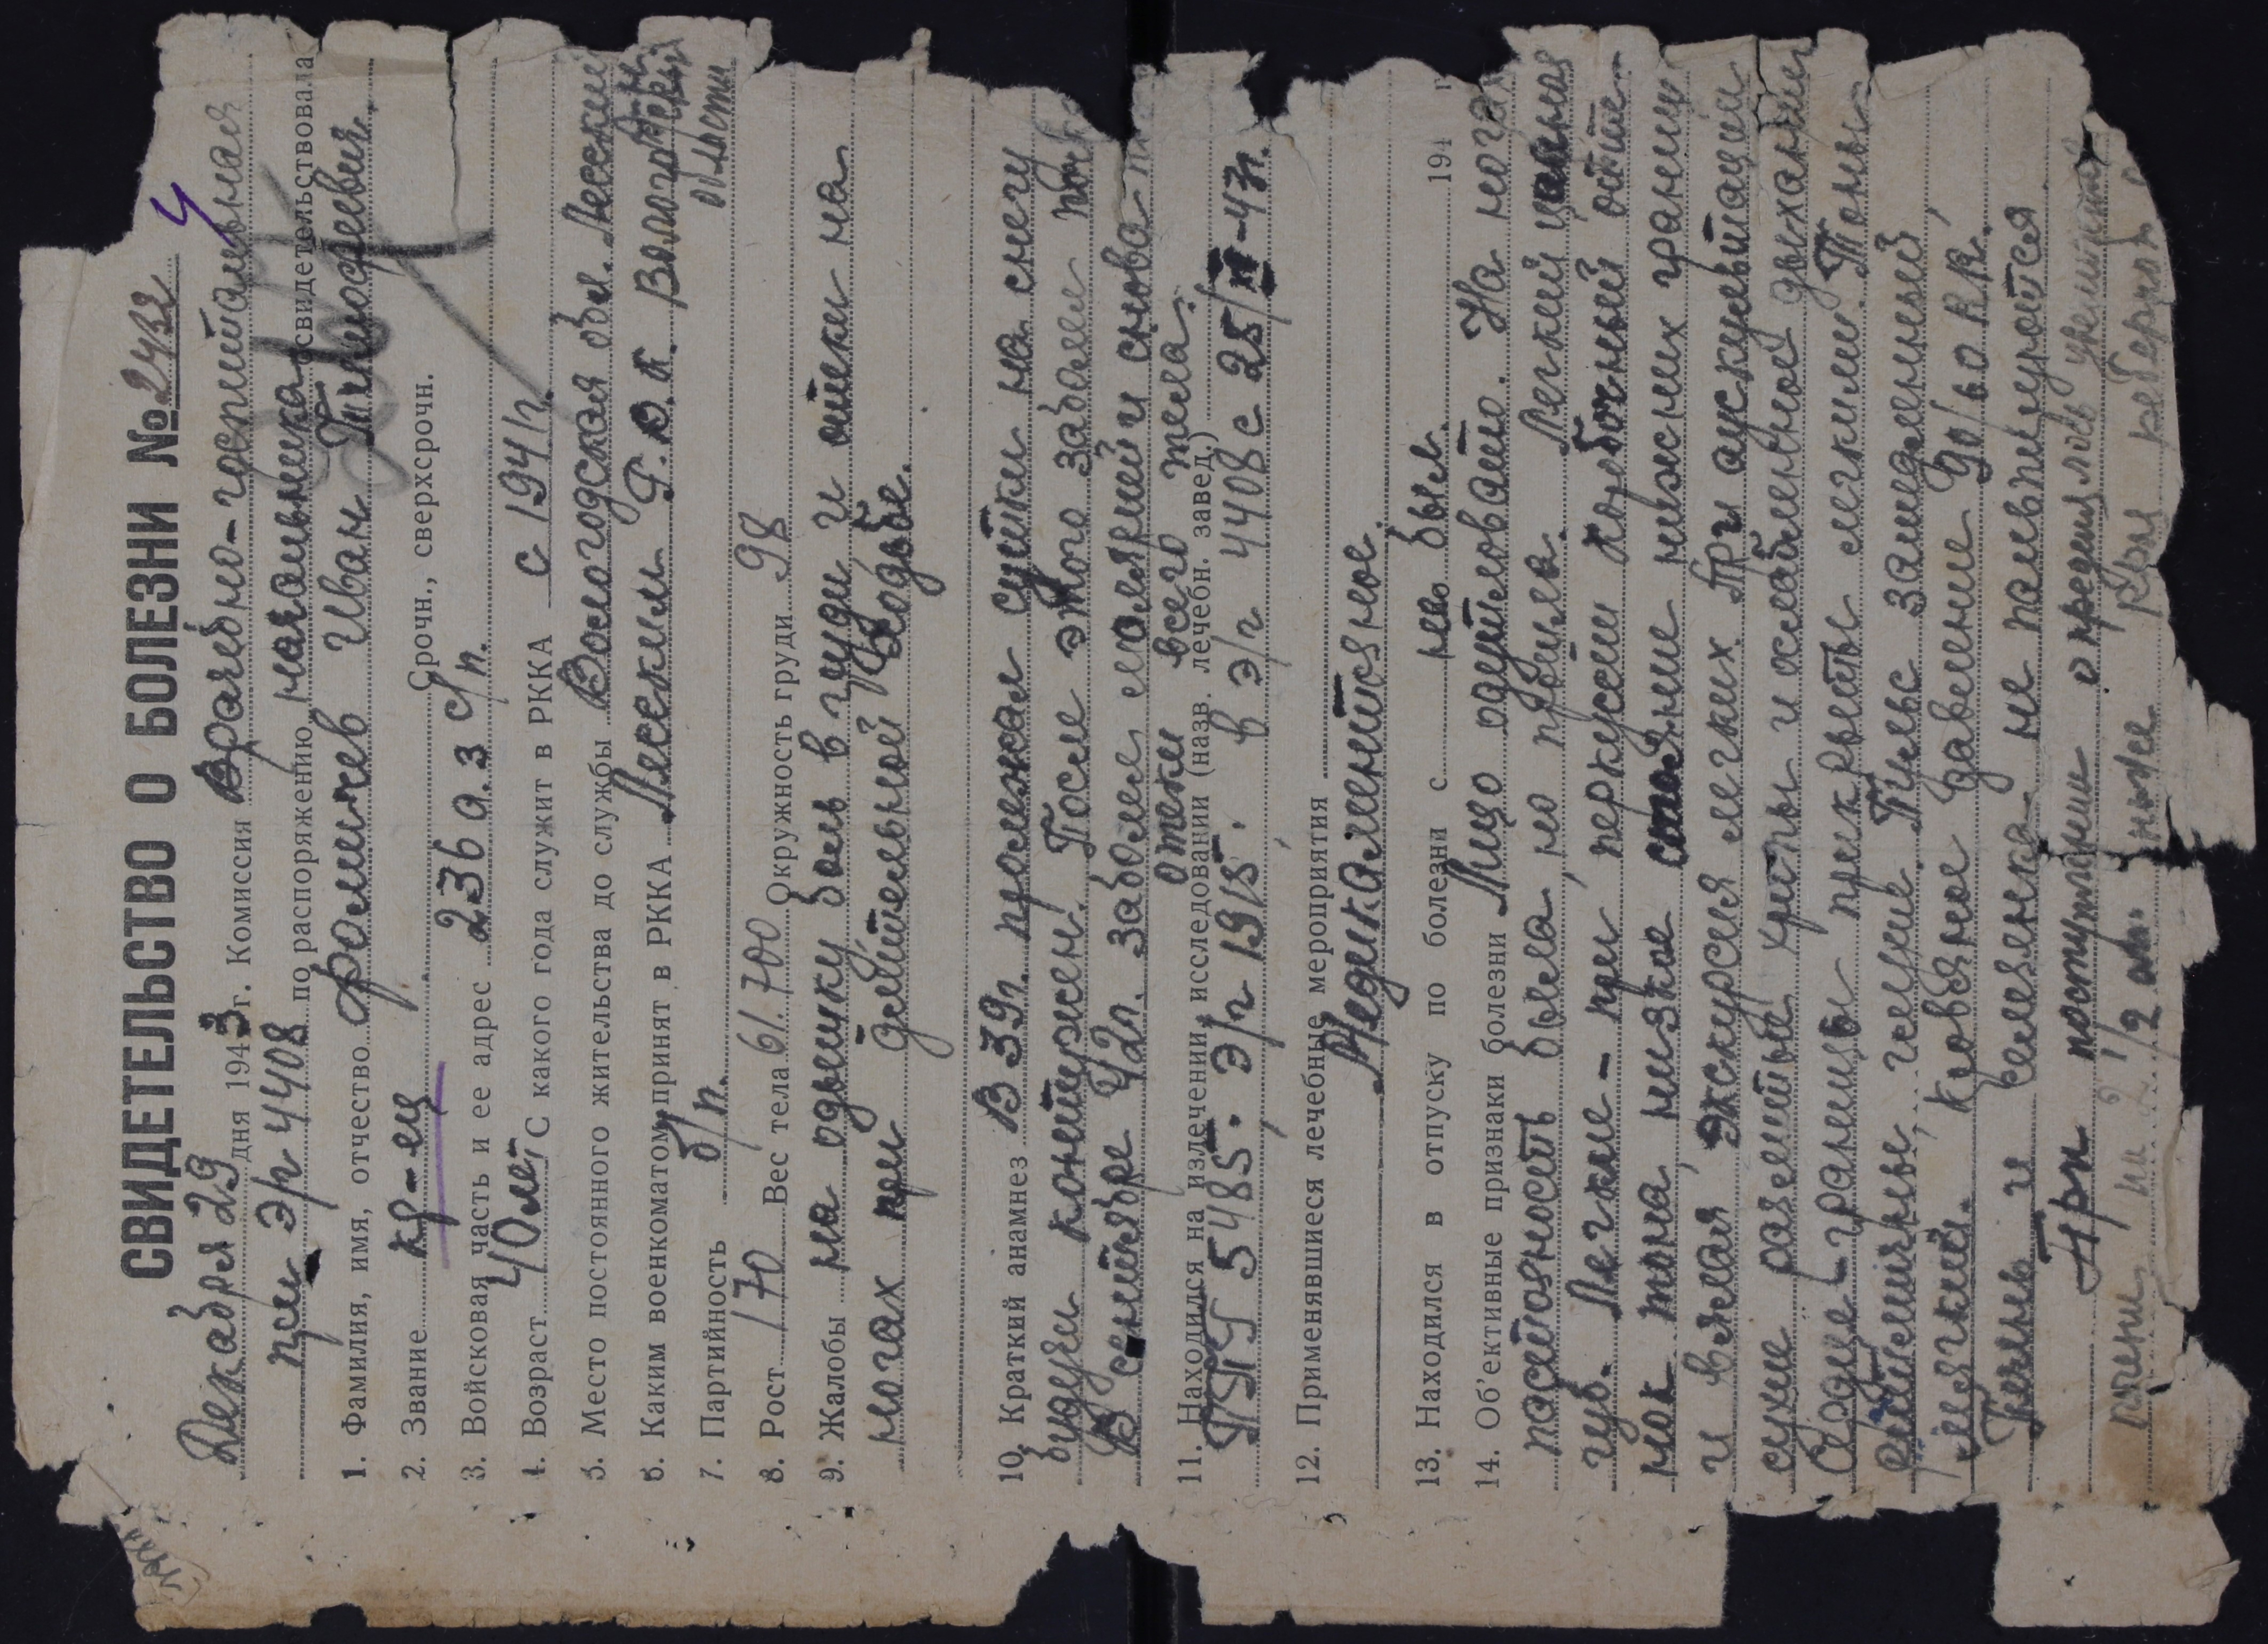 СВИДЕТЕЛЬСТВО О БОЛЕЗНИ № 2432
Декабря 29 дня 1943 г. Комиссия Врачебно-госпитальная
при э/г 4408 по распоряжению начальника освидетельствовала
1. Фамилия, имя, отчество Фомичев Иван Тимофеевич.
2. Звание кр-ец Срочн., сверхсрочн.
3. Войсковая часть и ее адрес 236 а.з с/п.
4. Возраст 40 лет С какого года служит в РККА с 1941г.
5. Место постоянного жительства до службы Вологодская обл. Лесский
6. Каким военкоматом принят в РККА Лесским Р.В.К. Вологодской
области
7. Партийность б/п.
8. Рост 170 Вес тела 61.700 Окружность груди 98
9. Жалобы на одышку, боль в груди и отеки на
ногах при длительной ходьбе.
10. Краткий анамнез В 39г. пролежал сутки на снегу
будучи контужен. После этого заболел
В сентябре 42г. заболел малярией и снова
отеки всего тела.
11. Находился на излечении, исследовании (назв. лечебн. завед.)
ППГ 5485. Э/г 1915. в э/г 4408 с 25/ -43г.
12. Применявшиеся лечебные мероприятия
Медикаментозное.
13. Находился в отпуску по болезни с не был. 194 г
14. Об'ективные признаки болезни Лицо одутловато. На ногах
пастозность была, но прошла. Легкий цианоз
губ. Легкие - при перкуссии коробочный отте-
нок тона, низкое стояние нижних границ
и вялая экскурсия легких. При аускультации
сухие разлитые хрипы и ослабленное дыхание
Сердце - границы прикрыты легкими. Тоны
ритмичные, глухие. Пульс замедленный,
мягкий. Кровяное давление 90/60 R.R.
Печень и селезенка не пальпируются
При поступлении определялось увеличение
печени на 2 1/2 см. ниже края реберной